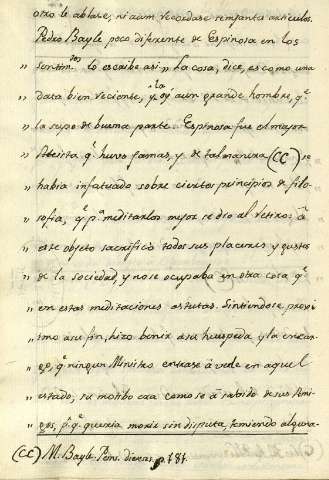 otro le ablase, ni aun recordase semejantes articulos.
Pedro Bayle poco diferente de Espinosa en los
" sentim.tos lo escribe asi " La cosa, dice, es como una
" data bien reciente, y la oý aun grande hombre, q.e
" la supo de buena parte. Espinosa fue el mayor
" Ateista q.e huvo jamas, y de tal manera (CC) se
" habia infatuado sobre ciertos principios de filo-
" sofia, q.e p.a meditarlos mejor se dio al retiro: á
" este objeto sacrificó todos sus placeres y gustos
" de la sociedad, y no se ocupaba en otra cosa q.e
" en estas meditaciones astutas. Sintiendose proxi-
" imo a su fin, hizo benir a su huespeda y la encar-
" gó, q.e ningun Ministro entrase á verle en aquel
" estado; su motibo era como se á sabido de sus Ami-
" gos, p.r q.e queria morir sin disputa, temiendo alguna
(CC) M. Bayle. Pens. diverses. p. 181.